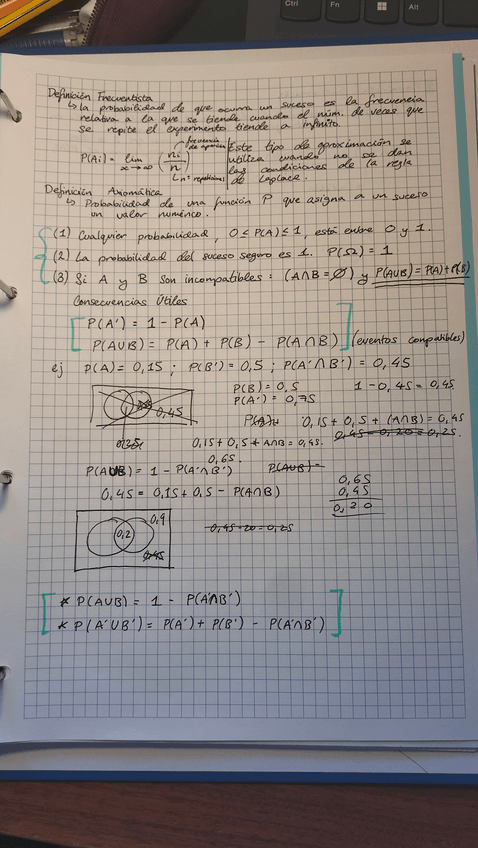 Ctrl
Fn
Alt
Definición Frecuentista
↳ la probabilidad de que ocurra un suceso es la frecuencia
relativa a la que se tiende cuando el núm. de veces que
se repite el experimento tiende a infinito.
P(Ai) = lim x→∞ (ni/n)
frecuencia de aparición
Este tipo de aproximación se
utiliza cuando no se dan
las condiciones de la regla
de Laplace.
Definición Axiomática
↳ Probabilidad de una función P que asigna a un suceso
un valor numérico.
(1) Cualquier probabilidad, 0 ≤ P(A) ≤ 1, está entre 0 y 1.
(2) La probabilidad del suceso seguro es 1. P(Ω) = 1
(3) Si A y B son incompatibles: (A∩B = Ø) y P(A∪B) = P(A) + P(B)
Consecuencias Útiles
P(A') = 1 - P(A)
P(A∪B) = P(A) + P(B) - P(A∩B) (eventos compatibles)
ej P(A) = 0,15 ; P(B') = 0,5 ; P(A'∩B') = 0,45
P(B) = 0,5 1 - 0,45 = 0,45
P(A') = 0,75
0,45
0,15 + 0,5 + (A∩B) = 0,45
0,15 + 0,5 + A∩B = 0,45.
0,45 - 0,20 = 0,25.
0,65.
P(A∪B) = 1 - P(A'∩B') P(A∪B) =
0,45 = 0,15 + 0,5 - P(A∩B)
0,65
0,45
0,20
0,2
0,45 - 20 = 0,25
* P(A∪B) = 1 - P(A'∩B')
* P(A'∪B') = P(A') + P(B') - P(A'∩B')